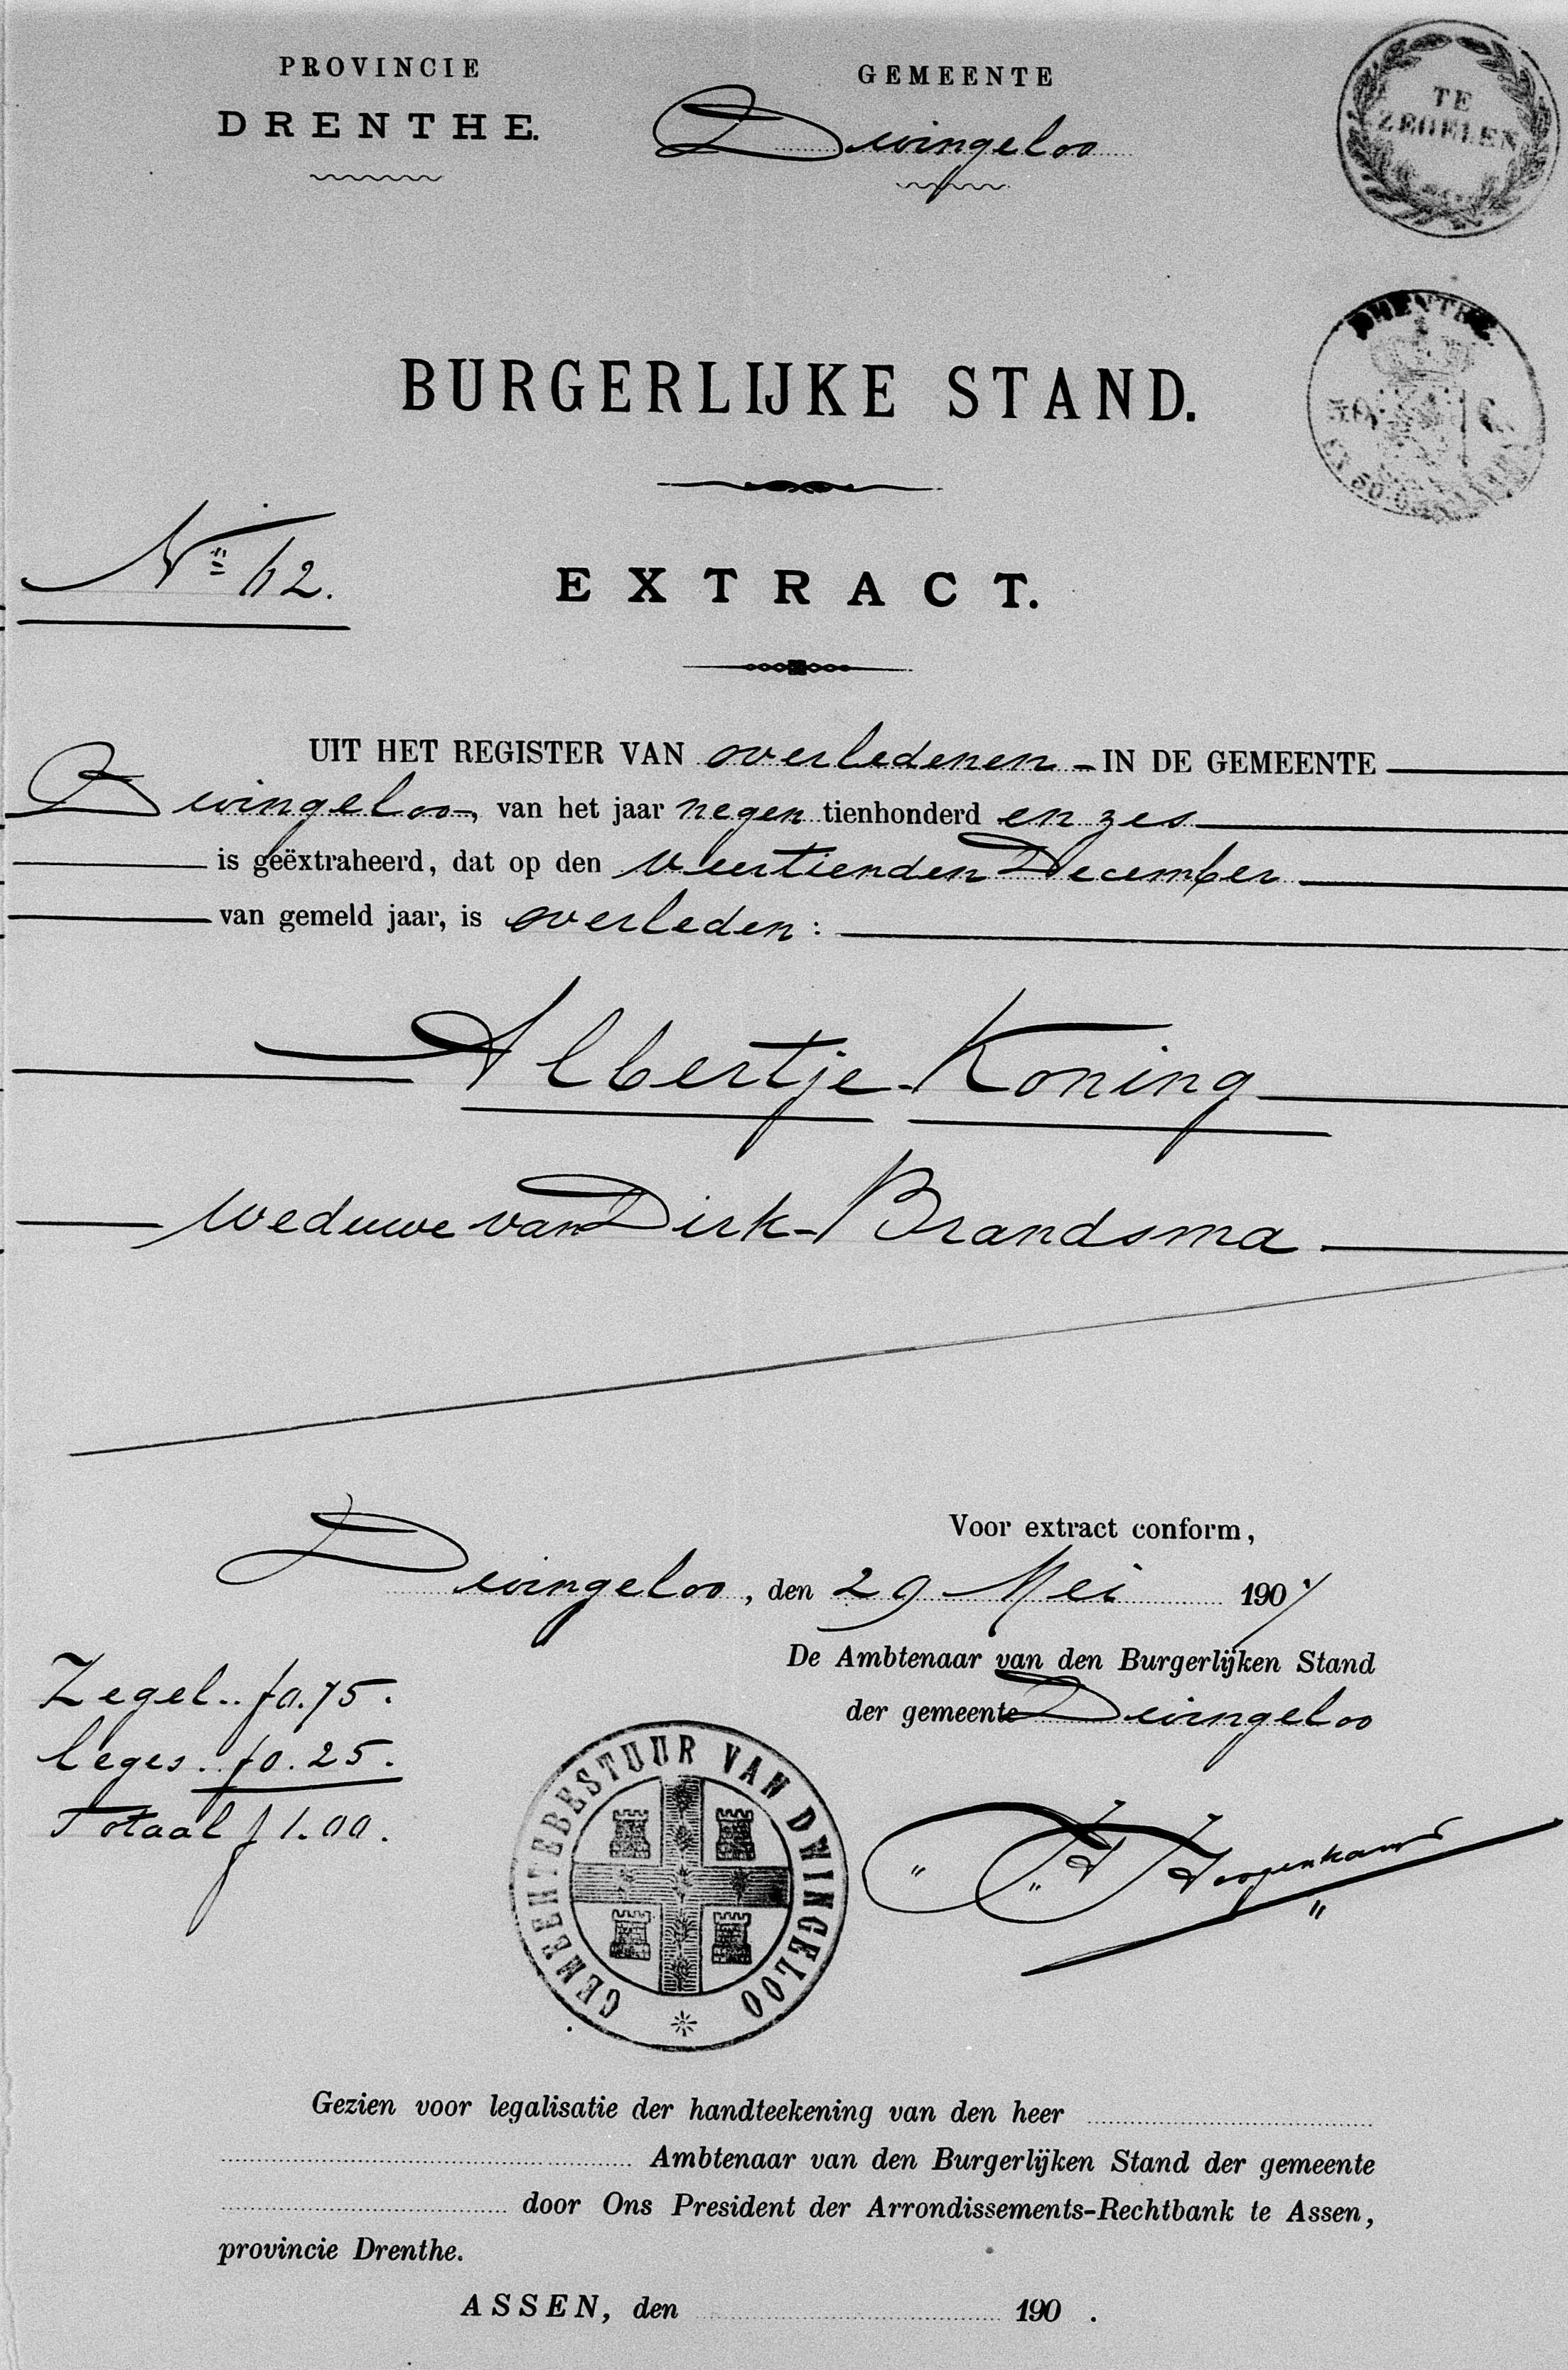 PROVINCIE
DRENTHE.
GEMEENTE
Dwingeloo
TE
ZEGELEN
DRENTHE
BURGERLIJKE STAND.
Nº 62.
EXTRACT.
UIT HET REGISTER VAN overledenen - IN DE GEMEENTE
Dwingeloo, van het jaar negen tienhonderd en zes
is geëxtraheerd, dat op den veertienden December
van gemeld jaar, is overleden:
Albertje Koning
weduwe van Dirk Brandsma
Voor extract conform,
Dwingeloo, den 29 Mei 1907
De Ambtenaar van den Burgerlijken Stand
der gemeente Dwingeloo
Zegel.. f0.75.
leges.. f0.25.
Totaal f1.00.
GEMEENTEBESTUUR VAN DWINGELOO
Gezien voor legalisatie der handteekening van den heer
Ambtenaar van den Burgerlijken Stand der gemeente
door Ons President der Arrondissements-Rechtbank te Assen,
provincie Drenthe.
ASSEN, den 190 .